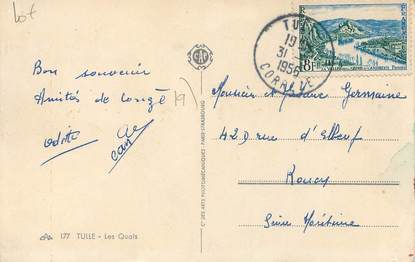 lot
TULLE
19
31
1956
CORRÈZE
8F
Bon souvenir
Amitiés de congé
Odette
177 TULLE - Les Quais
CIE DES ARTS PHOTOMÉCANIQUES - PARIS-STRASBOURG
Monsieur et Madame Germaine
42 D rue d'Elbeuf
Rouen
Seine Maritime